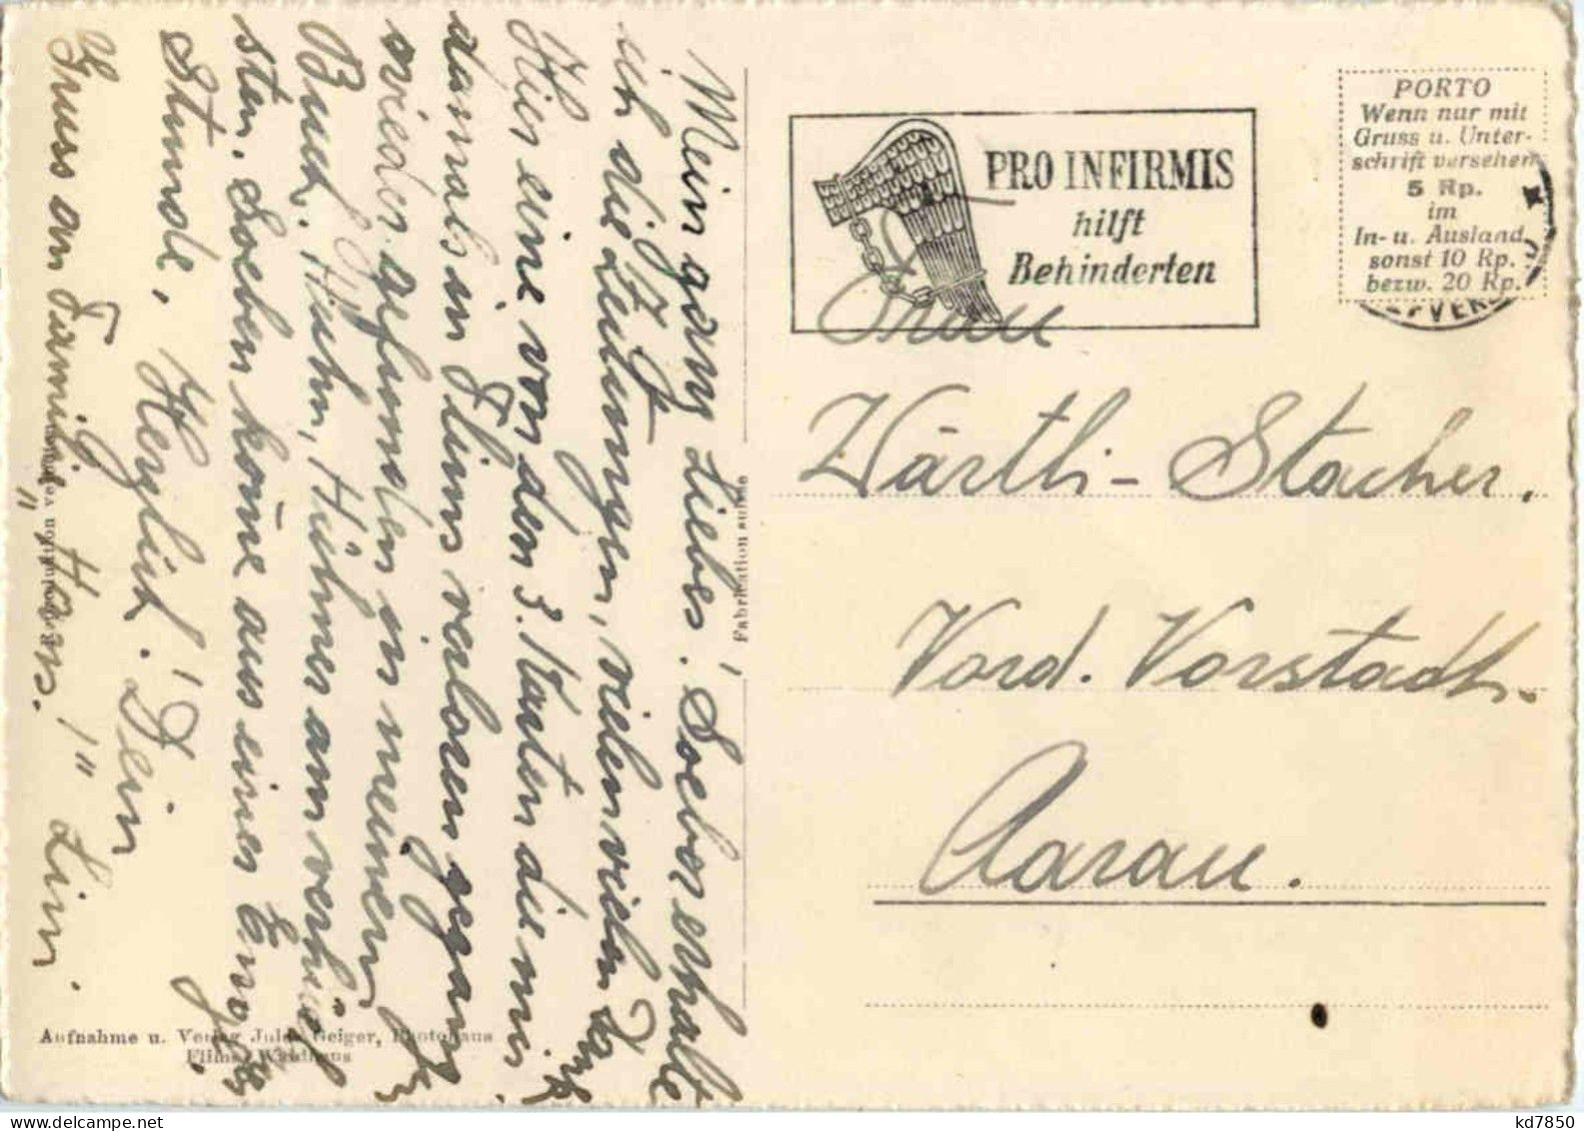 Mein ganz Liebes! Soeben erhalte
ich die Zeitungen, vielen vielen Dank
Hier eine von den 3. Karten die mir
damals in Flims verloren gegang
wieder gefunden in meinem
Buch. "Huhn, Hühner am
sten. Soeben kome aus einer
Stunde, Herzlich! Dein
Gruss an Familie "Hans!" Lini
Fabrikation suisse
Aufnahme u. Verlag Jules Geiger, Photohaus
Flims-Waldhaus
PRO INFIRMIS
hilft
Behinderten
PORTO
Wenn nur mit
Gruss u. Unter-
schrift versehen
5 Rp.
im
In- u. Ausland
sonst 10 Rp.
bezw. 20 Rp.
Frau
Wärtli - Stacher.
Vord. Vorstadt.
Aarau.
kd7850